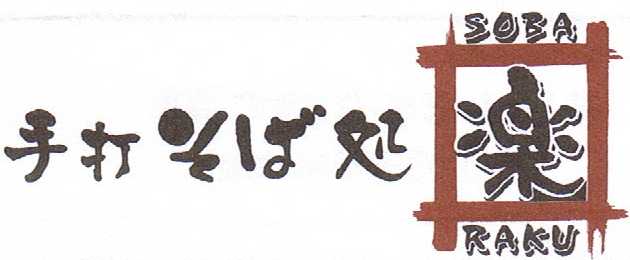 手打そば処
SOBA
楽
RAKU